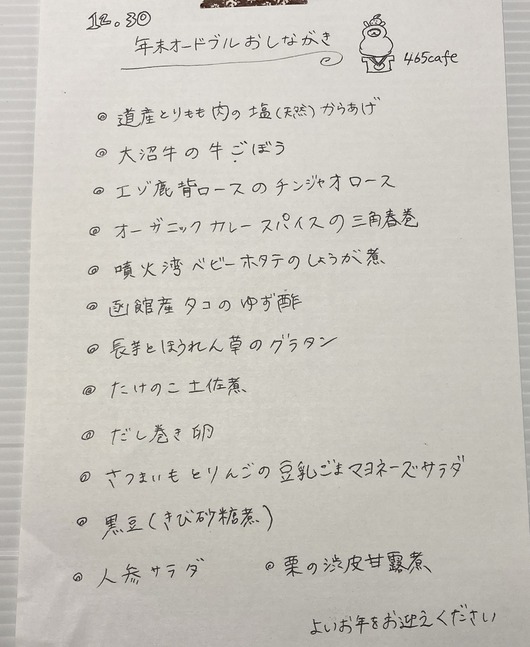 12.30
年末オードブルおしながき
465cafe
◎ 道産とりもも肉の塩(天然)からあげ
◎ 大沼牛の牛ごぼう
◎ エゾ鹿背ロースのチンジャオロース
◎ オーガニックカレースパイスの三角春巻
◎ 噴火湾ベビーホタテのしょうが煮
◎ 函館産タコのゆず酢
◎ 長芋とほうれん草のグラタン
◎ たけのこ土佐煮
◎ だし巻き卵
◎ さつまいもとりんごの豆乳ごまマヨネーズサラダ
◎ 黒豆(きび砂糖煮)
◎ 人参サラダ ◎ 栗の渋皮甘露煮
よいお年をお迎えください